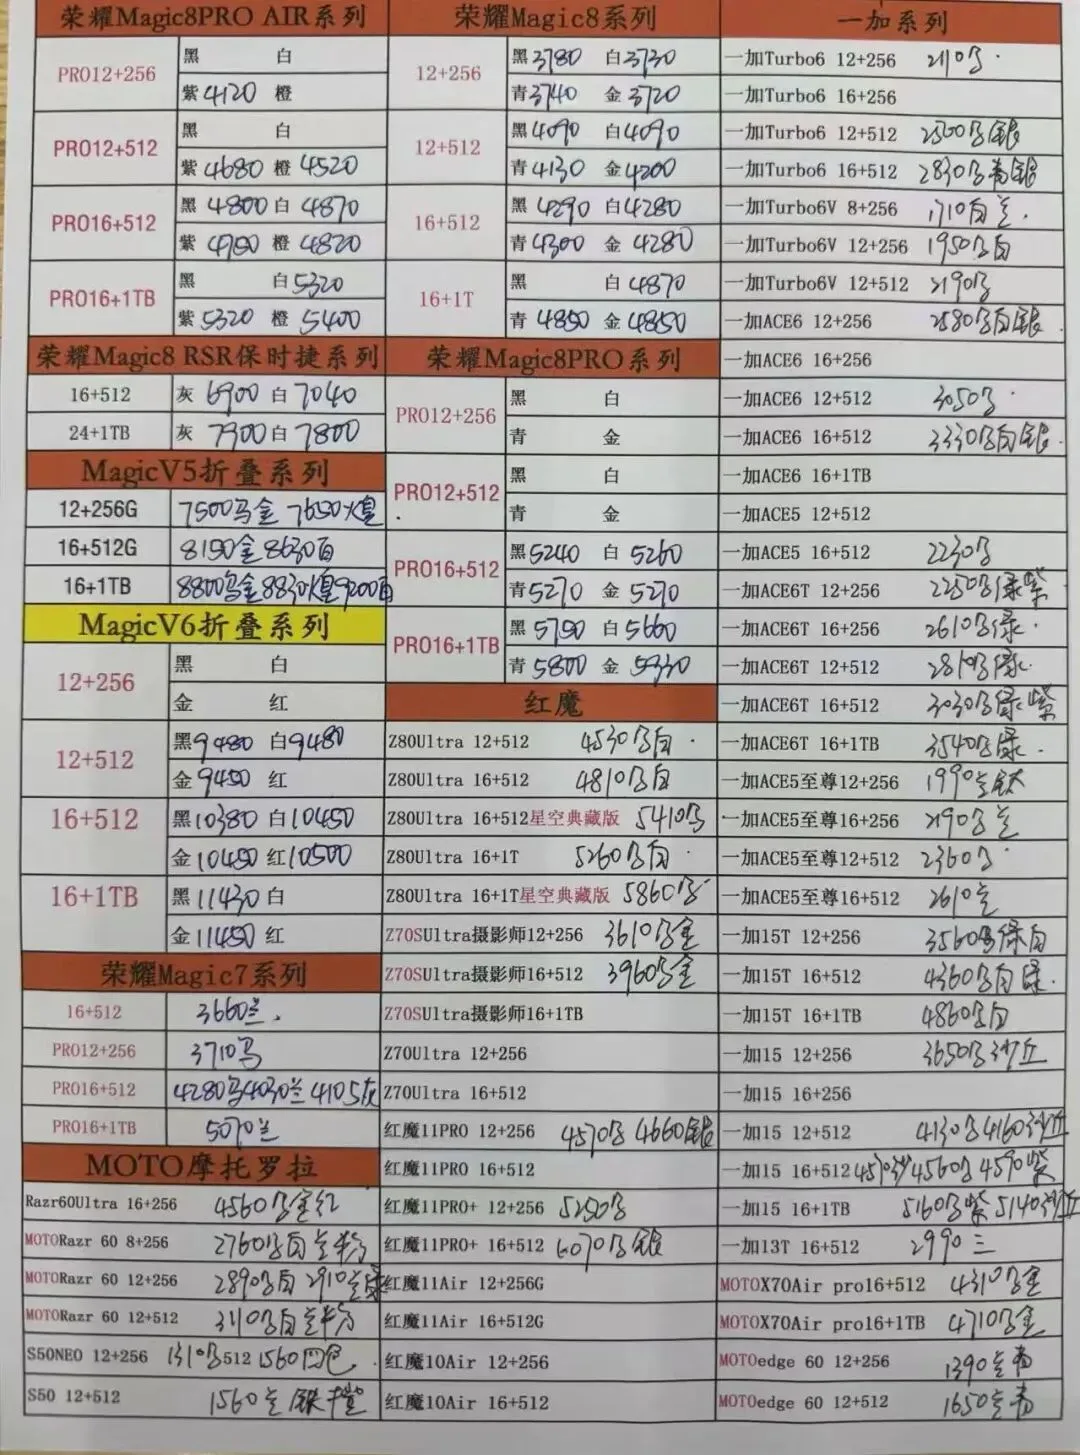 荣耀Magic8PRO AIR系列
PRO12+256 黑 白
紫4120 橙
PRO12+512 黑 白
紫4680 橙4520
PRO16+512 黑4800 白4870
紫4750 橙4820
PRO16+1TB 黑 白5320
紫5320 橙5400
荣耀Magic8 RSR保时捷系列
16+512 灰6900 白7040
24+1TB 灰7900 白7800
MagicV5折叠系列
12+256G 7500马金 7650煌
16+512G 8150金 8630白
16+1TB 8800马金 8830煌 9200白
MagicV6折叠系列
12+256 黑 白
金 红
12+512 黑9480 白9480
金9450 红
16+512 黑10380 白10450
金10450 红10500
16+1TB 黑11430 白
金11450 红
荣耀Magic7系列
16+512 3660兰
PRO12+256 3710马
PRO16+512 4280马4030兰 4105灰
PRO16+1TB 5070兰
MOTO摩托罗拉
Razr60Ultra 16+256 4560 金红
MOTORazr 60 8+256 2760 白兰
MOTORazr 60 12+256 2890 白 2910兰绿
MOTORazr 60 12+512 3110 白兰
S50NEO 12+256 1310 512 1560四色
S50 12+512 1560兰银
荣耀Magic8系列
12+256 黑3780 白3730
青3740 金3720
12+512 黑4090 白4090
青4130 金4200
16+512 黑4290 白4280
青4300 金4280
16+1T 黑 白4870
青4850 金4850
荣耀Magic8PRO系列
PRO12+256 黑 白
青 金
PRO12+512 黑 白
青 金
PRO16+512 黑5240 白5260
青5270 金5270
PRO16+1TB 黑5750 白5660
青5800 金5330
红魔
Z80Ultra 12+512 4530 白
Z80Ultra 16+512 4810 白
Z80Ultra 16+512星空典藏版 5410
Z80Ultra 16+1T 5260 白
Z80Ultra 16+1T星空典藏版 5860
Z70SUltra摄影师12+256 3610 金
Z70SUltra摄影师16+512 3960 金
Z70SUltra摄影师16+1TB
Z70Ultra 12+256
Z70Ultra 16+512
红魔11PRO 12+256 4570 4660银
红魔11PRO 16+512
红魔11PRO+ 12+256 5250
红魔11PRO+ 16+512 6070 银
红魔11Air 12+256G
红魔11Air 16+512G
红魔10Air 12+256
红魔10Air 16+512
一加系列
一加Turbo6 12+256 2110
一加Turbo6 16+256
一加Turbo6 12+512 2500 银
一加Turbo6 16+512 2830 青银
一加Turbo6V 8+256 1710白兰
一加Turbo6V 12+256 1950 白
一加Turbo6V 12+512 2190
一加ACE6 12+256 2580 白银
一加ACE6 16+256
一加ACE6 12+512 3050
一加ACE6 16+512 3330 白银
一加ACE6 16+1TB
一加ACE5 12+512
一加ACE5 16+512 2230
一加ACE6T 12+256 2250 绿紫
一加ACE6T 16+256 2610 绿
一加ACE6T 12+512 2810 绿
一加ACE6T 16+512 3030 绿紫
一加ACE6T 16+1TB 3540 绿
一加ACE5至尊12+256 1990兰钛
一加ACE5至尊16+256 2190 兰
一加ACE5至尊12+512 2360
一加ACE5至尊16+512 2610兰
一加15T 12+256 3560 绿白
一加15T 16+512 4360 白绿
一加15T 16+1TB 4860 白
一加15 12+256 3650 沙丘
一加15 16+256
一加15 12+512 4130 4160沙丘
一加15 16+512 4570沙 4560 4590紫
一加15 16+1TB 5160 紫 5140沙丘
一加13T 16+512 2990三
MOTOX70Air pro16+512 4310 金
MOTOX70Air pro16+1TB 4710 金
MOTOedge 60 12+256 1390兰青
MOTOedge 60 12+512 1650兰青